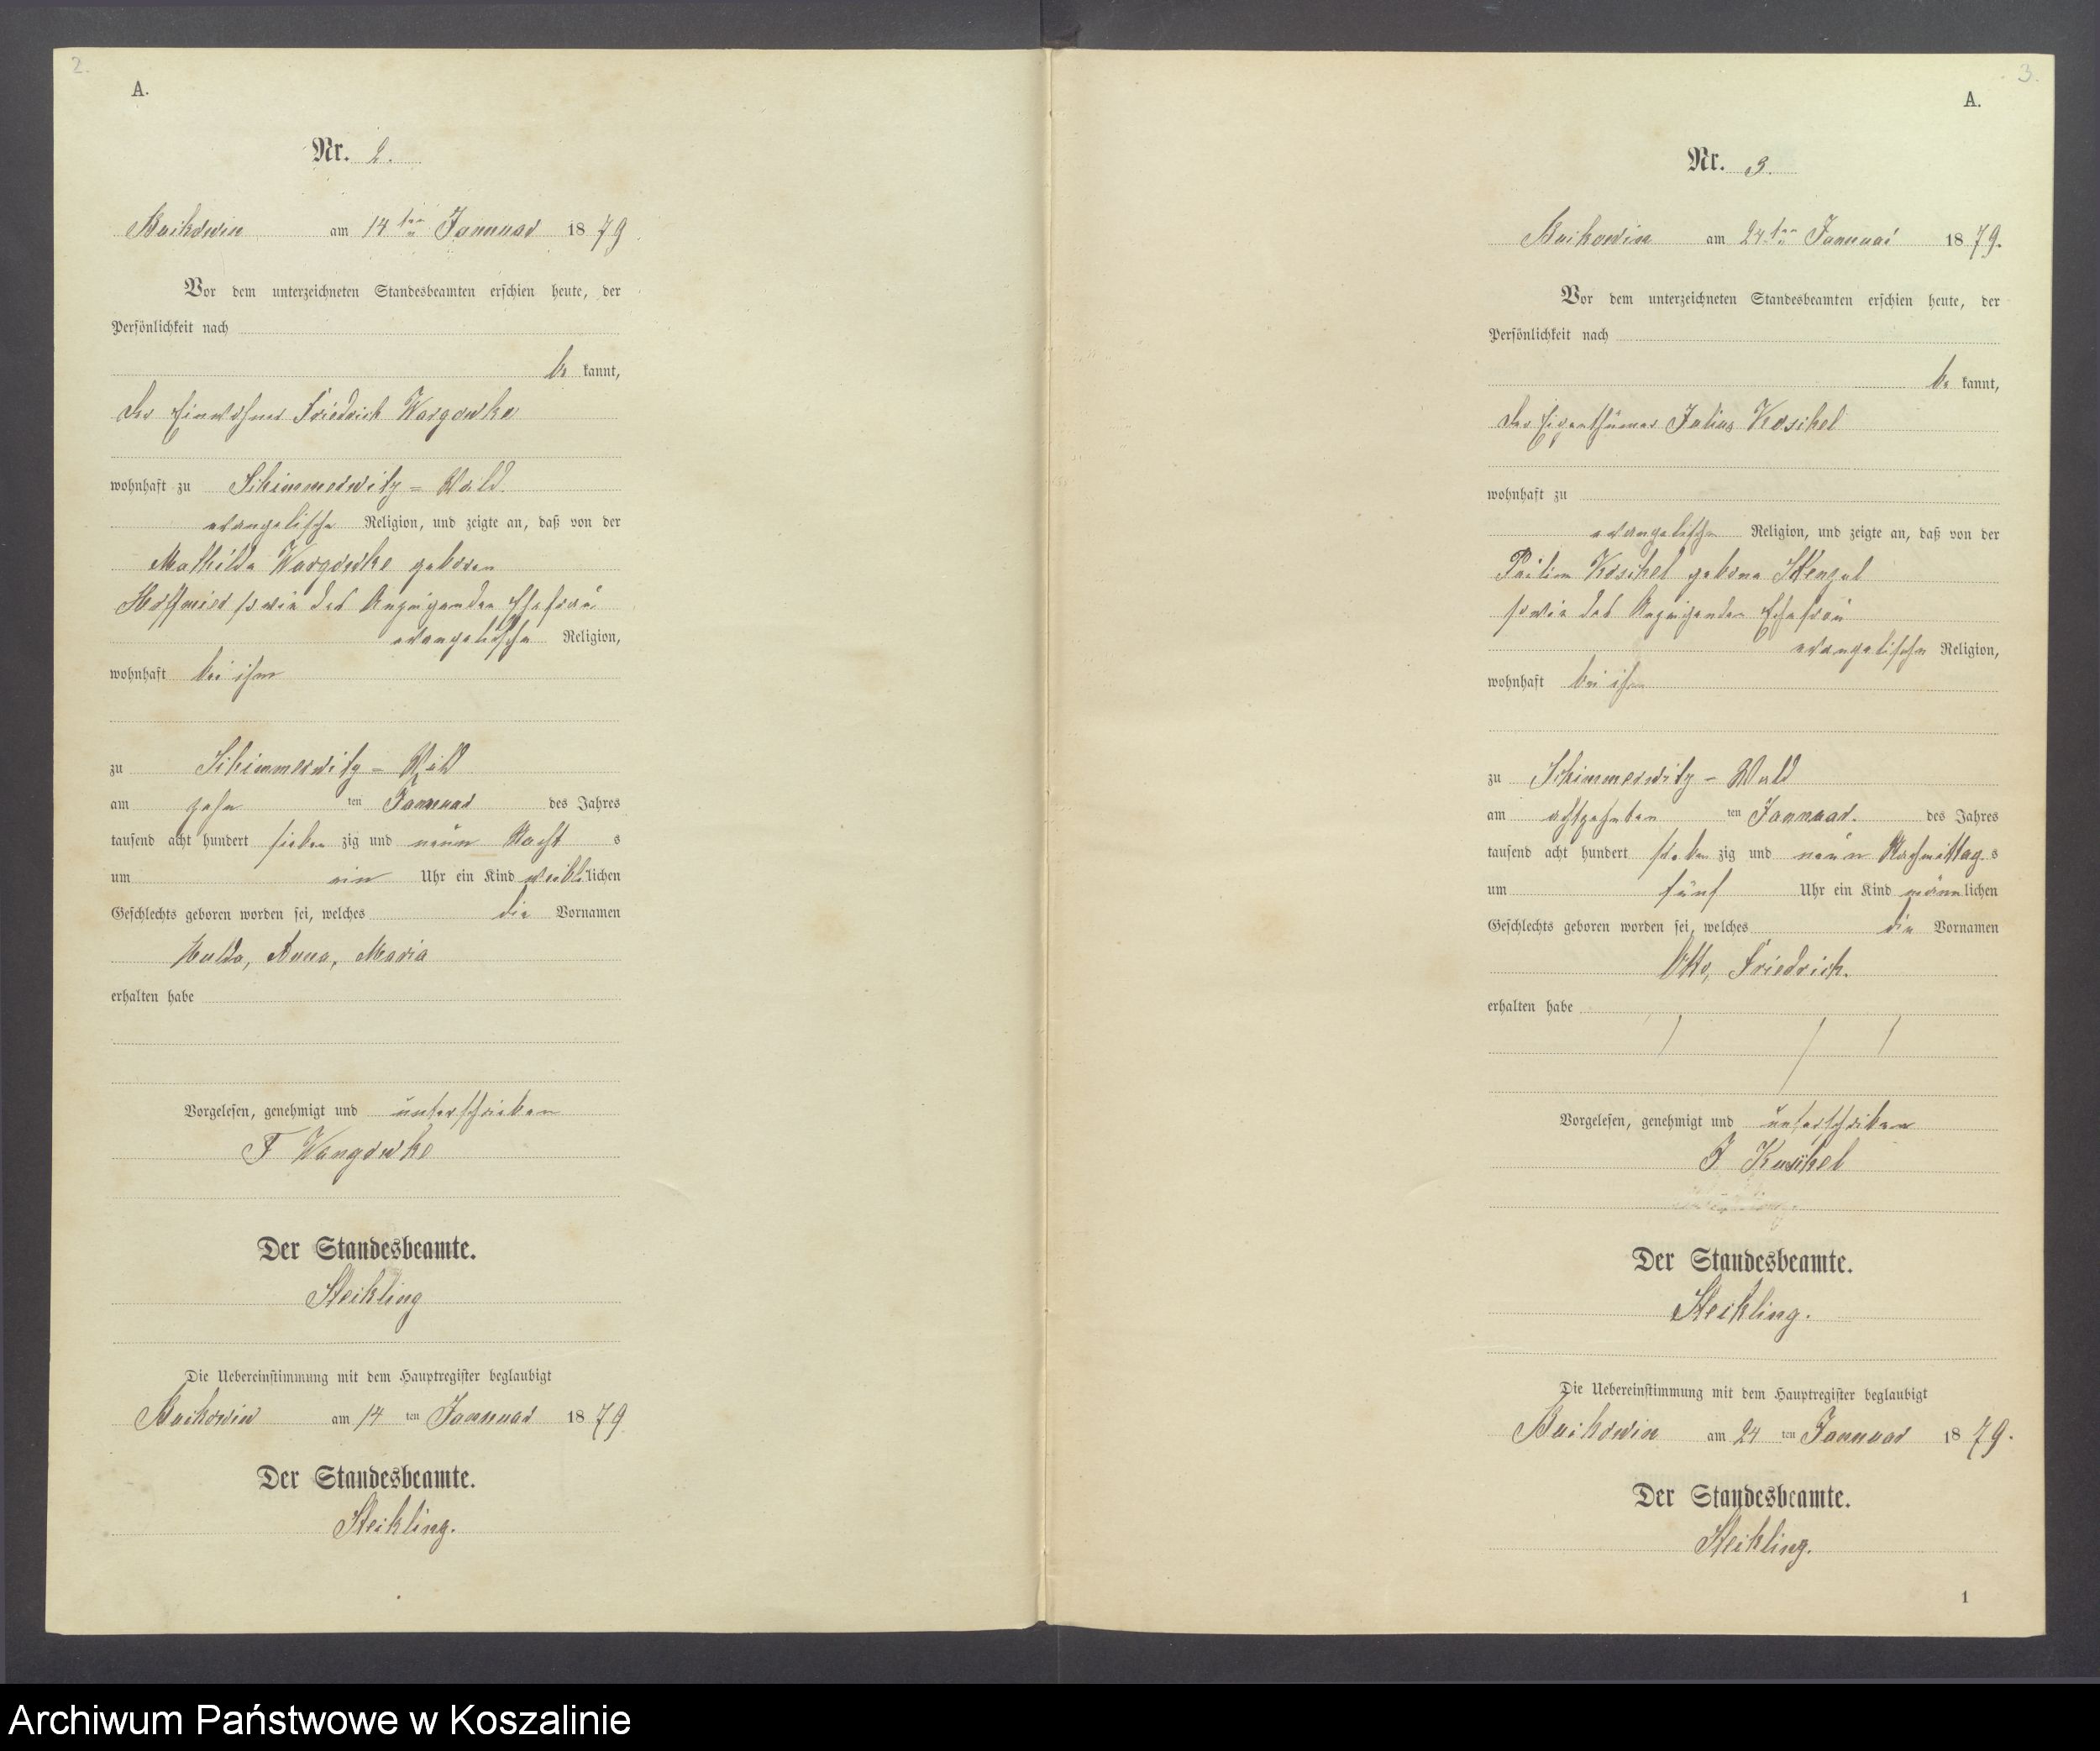 2.
A.
Nr. 2.
Buckowin am 14ten Januar 1879
Vor dem unterzeichneten Standesbeamten erschien heute, der
Persönlichkeit nach
be kannt,
der Einwohner Friedrich Wargowke
wohnhaft zu Schimmerwitz = Wald
evangelische Religion, und zeigte an, daß von der
Mathilde Wargowke geboren
des Anzeigenden Ehefrau
evangelische Religion,
wohnhaft bei ihm
zu Schimmerwitz = Wald
am zehn ten Januar des Jahres
tausend acht hundert sieben zig und neun Nacht s
um ein Uhr ein Kind weiblichen
Geschlechts geboren worden sei, welches die Vornamen
Hulda, Anna, Maria
erhalten habe
Vorgelesen, genehmigt und unterschrieben
F Wargowke
Der Standesbeamte.
Steikling
Die Uebereinstimmung mit dem Hauptregister beglaubigt
Buckowin am 14 ten Januar 1879
Der Standesbeamte.
Steikling.
3.
A.
Nr. 3.
Buckowin am 24ten Januar 1879.
Vor dem unterzeichneten Standesbeamten erschien heute, der
Persönlichkeit nach
be kannt,
der Eigenthümer Julius Koschel
wohnhaft zu
evangelischen Religion, und zeigte an, daß von der
Koschel geborne Stenzel
des Anzeigenden Ehefrau
evangelischen Religion,
wohnhaft bei ihm
zu Schimmerwitz - Wald
am achtzehnten ten Januar. des Jahres
tausend acht hundert sieben zig und neun Nachmittag s
um fünf Uhr ein Kind männlichen
Geschlechts geboren worden sei, welches die Vornamen
Otto, Friedrich.
erhalten habe
Vorgelesen, genehmigt und unterschrieben
J Kuschel
Der Standesbeamte.
Steikling.
Die Uebereinstimmung mit dem Hauptregister beglaubigt
Buckowin am 24 ten Januar 1879.
Der Standesbeamte.
Steikling.
1
Archiwum Państwowe w Koszalinie